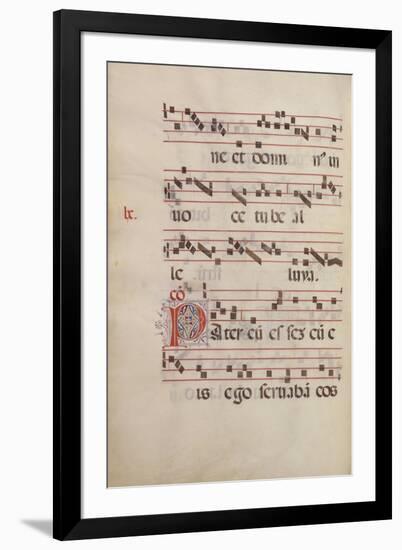 ne et domi nus in
uo ce tube al
lx.
le luya.
cō
Pater cū essez cū e
is ego seruabā eos